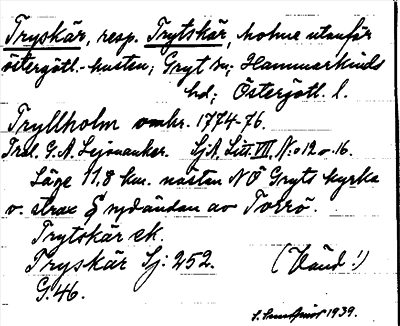 Tryskär, resp. Trytskär, holme utanför
östergötl.-kusten; Gryt sn; Hammarkinds
hd; Östergötl. l.
Tryllholm omkr. 1774-76.
Trol. G. A. Lejonanker. SjA. Litt. VII, N:o 12 o 16.
Läge 11.8 km. nästan NÖ Gryts kyrka
o. strax S sydändan av Torrö.
Trytskär ek.
Tryskär Sj: 252. (Vänd!)
G. 46.
1939.